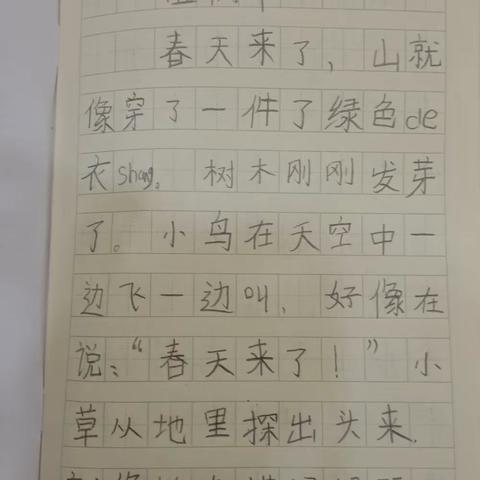 春天来了，山就
像穿了一件了绿色de
衣shang。树木刚刚发芽
了。小鸟在天空中一
边飞一边叫，好像在
说：“春天来了！”小
草从地里探出头来.